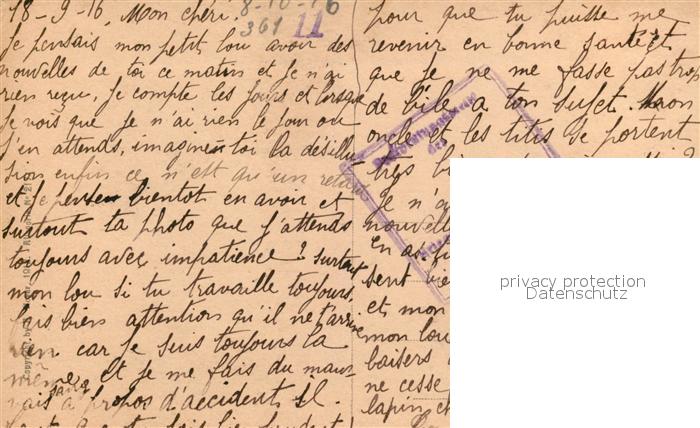 18-9-16. Mon chéri.
8-10-16
361 11
Je pensais mon petit lou avoir des
nouvelles de toi ce matin et je n'ai
rien reçu, je compte les jours et lorsque
je vois que je n'ai rien le jour ou
j'en attends, imagines toi la désillu
sion enfin ce n'est qu'un retard
et je pense bientot en avoir et
surtout ta photo que j'attends
toujours avec impatience? surtout
mon lou si tu travaille toujours,
fais bien attention qu'il ne t'arrive
rien car je suis toujours la
même et je me fais du mau
vais sang a propos d'accident. Il
pour que tu puisse me
revenir en bonne santé et
que je ne me fasse pas trop
de bile a ton sujet. Mon
oncle et les titis se portent
très
Je n'a
nouvelle
En
sent bie
et mon
mon lou
baisers
ne cesse
lapin ch
privacy protection
Datenschutz